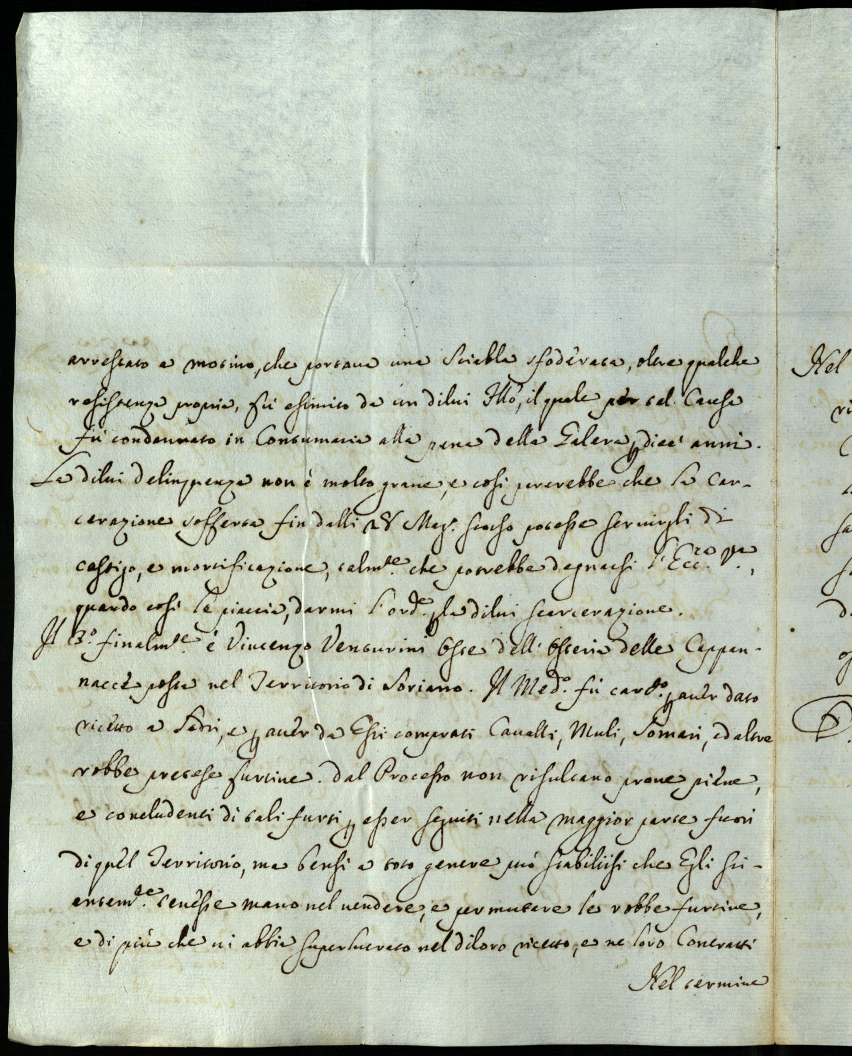 arrestato a motivo, che portava una Sciabla sfoderata, oltre qualche
resistenza propria, fu esimito da un dilui Fllo, il quale per tal Causa
fù condannato in Contumacia alla pena della Galera p dieci anni.
La dilui delinquenza non è molto grave, e così parerebbe che la Car-
cerazione sofferta fin dalli 28 Mag. scorso potesse servirgli di
castigo, e mortificazione, talmte che potrebbe degnarsi l'Eccza Vra,
quando così le piaccia, darmi l'orde p la dilui scarcerazione.
Il 3o finalmte è Vincenzo Venturini Oste dell'Osteria delle Cappan-
nacce posta nel Territorio di Soriano. Il Medo fù carcto p aver dato
ricetto a Ladri, e p aver da Essi comprati Cavalli, Muli, Somari, ed altre
robbe pretese furtive. Dal Processo non risultano prove piene,
e concludenti di tali furti p esser seguiti nella maggior parte fuori
di quel Territorio, ma bensì a toto genere può stabilirsi che Egli sci-
entemte tenesse mano nel vendere, e permutare le robbe furtive,
e di più che vi abbia superlucrato nel diloro ricetto, e ne loro Contratti
Nel termine
Nel